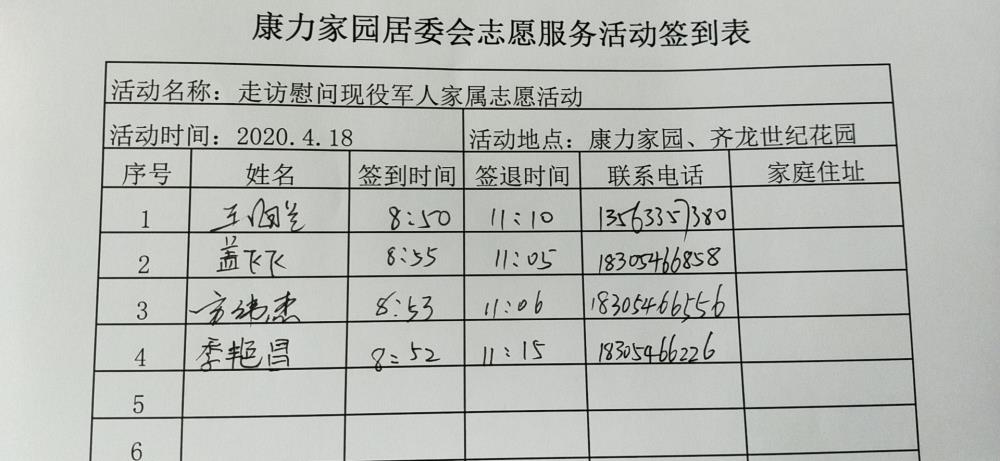 康力家园居委会志愿服务活动签到表
活动名称：走访慰问现役军人家属志愿活动
活动时间：2020.4.18 活动地点：康力家园、齐龙世纪花园
序号 姓名 签到时间 签退时间 联系电话 家庭住址
1 8:50 11:10 13563357380
2 盖飞飞 8:55 11:05 18305466858
3 方纬杰 8:53 11:06 18305466556
4 季艳昌 8:52 11:15 18305466226
5
6